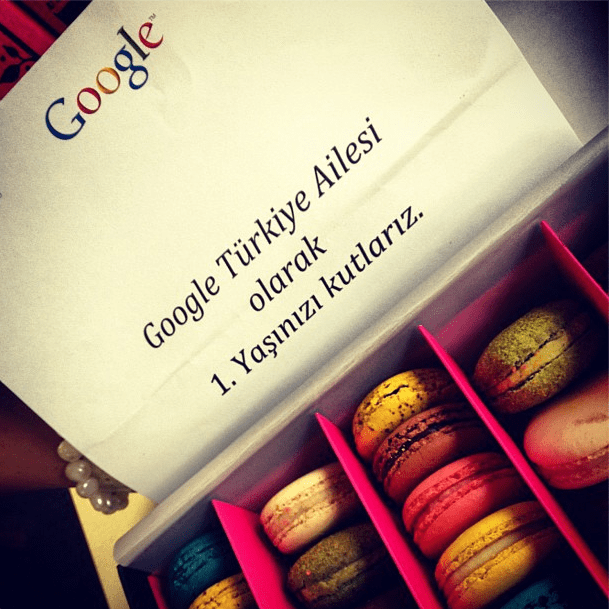 Google™
Google Türkiye Ailesi
olarak
1. Yaşınızı kutlarız.